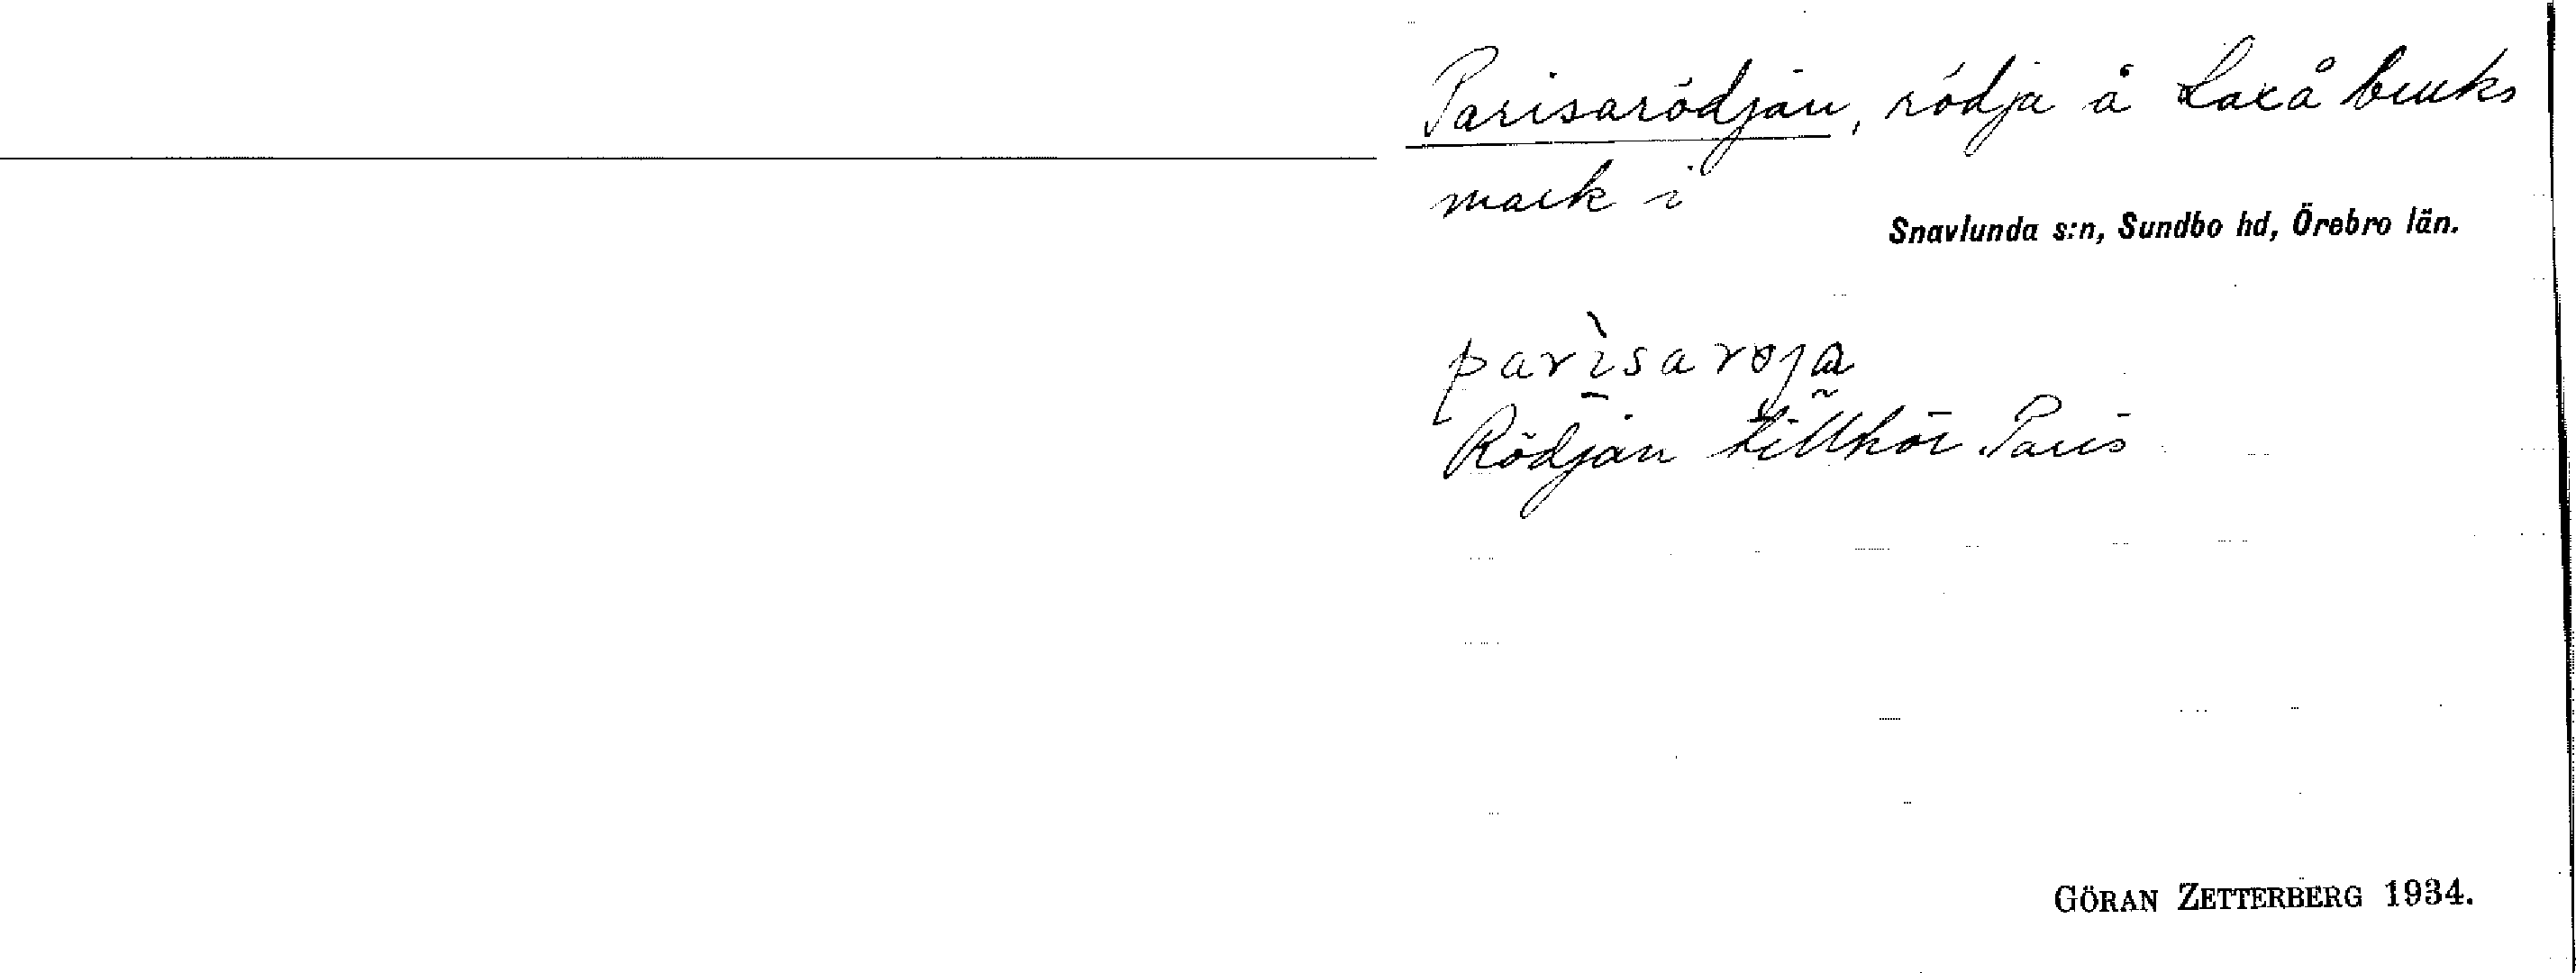 Parisarödjan, rödja å Laxå bruks
mark i
Snavlunda s:n, Sundbo hd, Örebro län.
parìsarøja
Rödjan tillhör Paris
GÖRAN ZETTERBERG 1934.